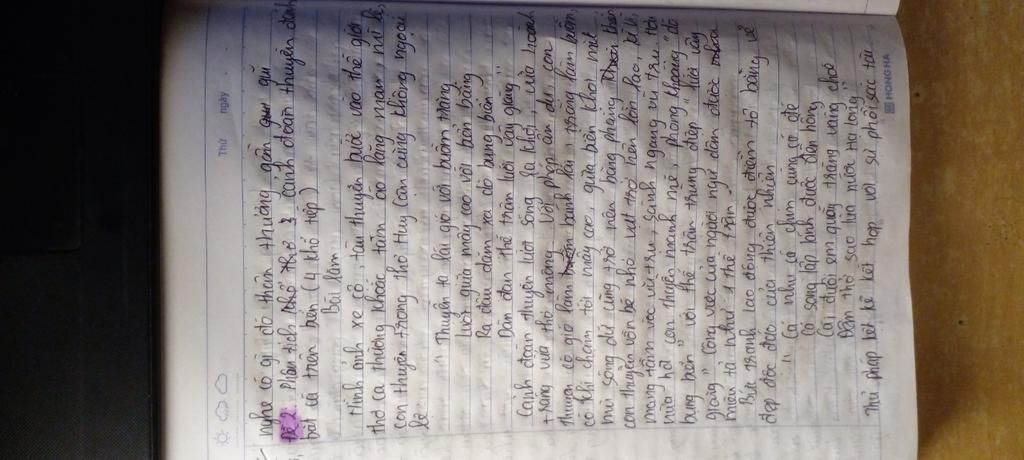 Thứ ngày
nghe có gì đó thiêng thiêng gần gũi
Đề 2 Phân tích khổ thơ 2 cảnh đoàn thuyền đánh
bắt cá trên biển (4 khổ tiếp)
Bài làm
Hình ảnh xe cộ, tàu thuyền bước vào thế giới
thơ ca thường khoác tấm áo lãng mạn, mĩ lệ,
con thuyền trong thơ Huy Cận cũng không ngoại
lệ
" Thuyền ta lái gió với buồm trăng
Lướt giữa mây cao với biển bằng
Ra đậu dặm xa dò bụng biển
Dàn đan thế trận lưới vây giăng"
Cảnh đoàn thuyền lướt sóng ra khơi, vừa hoành
tráng vừa thơ mộng. Với phép ẩn dụ, con
thuyền có gió làm bánh lái, trăng làm buồm,
có khi chạm tới mây cao, giữa biển khơi mịt
mùi sóng dữ cũng trở nên bằng phẳng
con thuyền vốn bé nhỏ vụt trở lên lớn lao, kì vĩ,
mang tầm vóc vũ trụ, sánh ngang vũ trụ. Tới
nữa nơi con thuyền mạnh mẽ, phóng khoáng "dò
bụng biển" với "thế trận trùng điệp" lưới vây
giăng" công việc của người ngư dân được
miêu tả như 1 thế trận.
Bức tranh lao động được điểm tô bằng vẻ
đẹp độc đáo của thiên nhiên
" Cá nhụ cá chim cùng cá đé
Cá song lấp lánh đuốc đen hồng
Cái đuôi em quẫy trăng vàng choé
Đêm thở sao lùa nước Hạ Long"
Thủ pháp liệt kê kết hợp với sự phối sắc tài
HONG HA